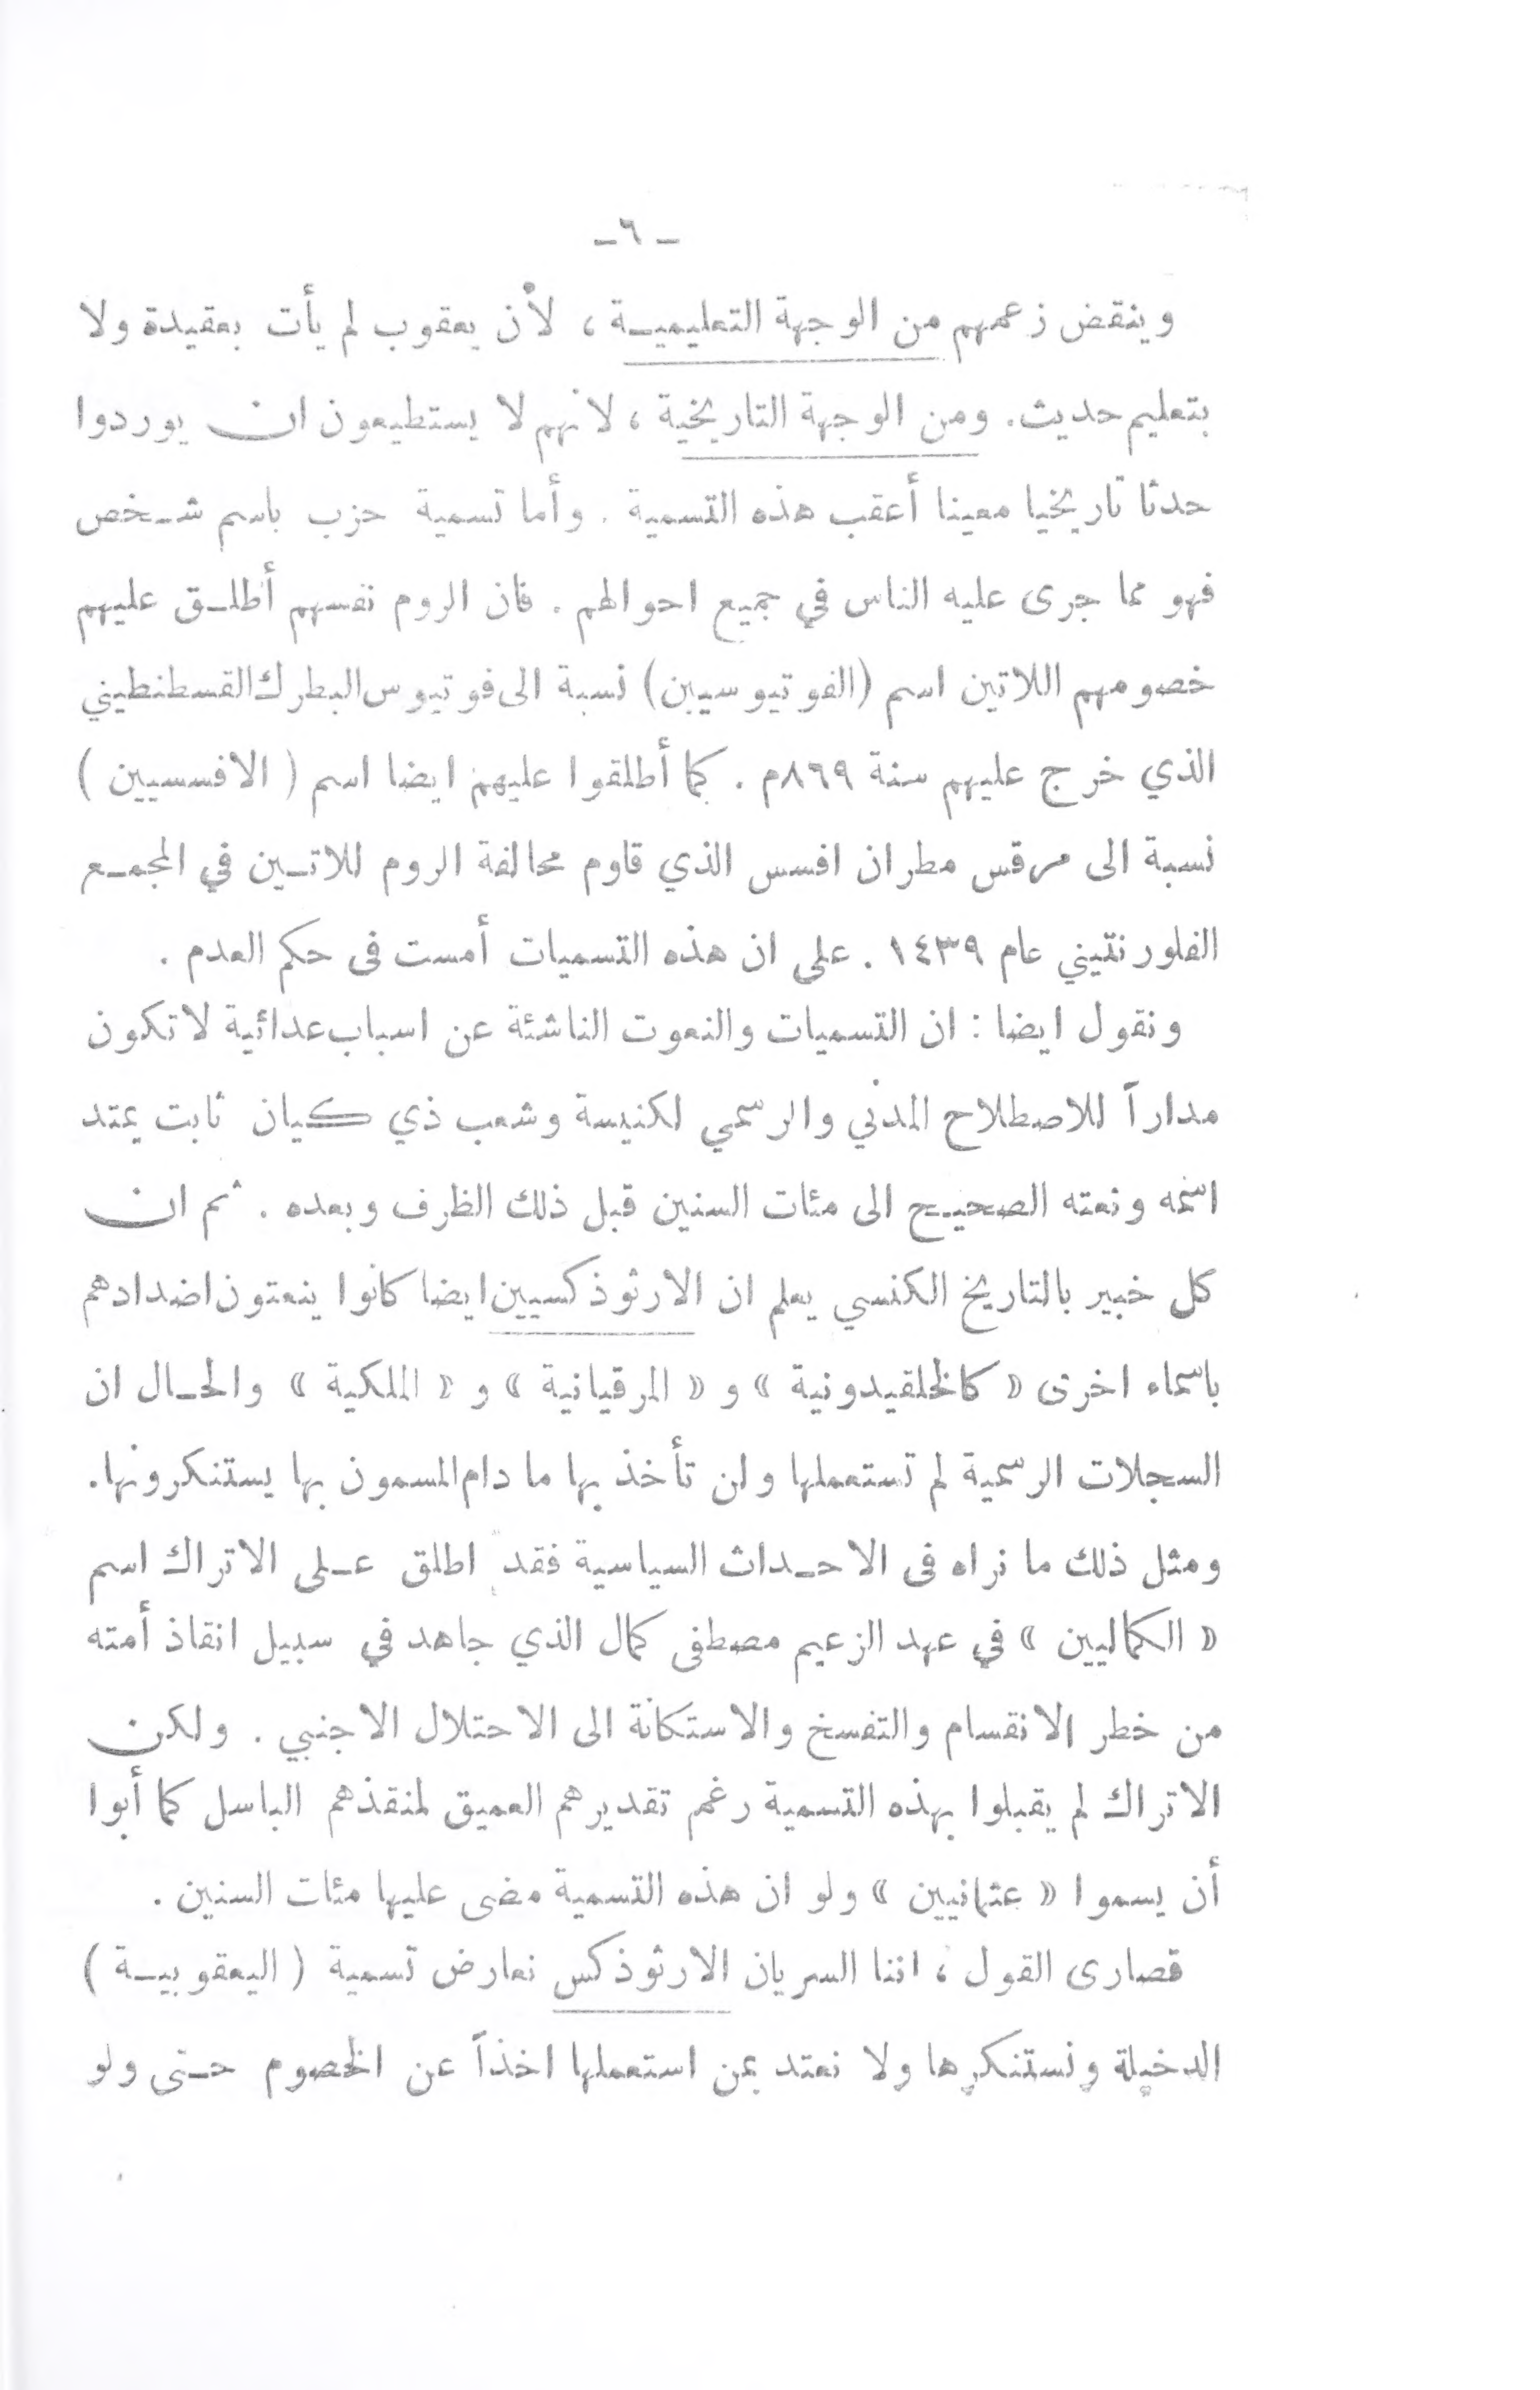 ـ ٦ ـ
وينقض زعمهم من الوجهة التعليمية ، لأن يعقوب لم يأت بعقيدة ولا
بتعليم حديث. ومن الوجهة التاريخية ، لانهم لا يستطيعون ان يوردوا
حدثا تاريخيا معينا أعقب هذه التسمية . وأما تسمية حزب باسم شخص
فهو مما جرى عليه الناس في جميع احوالهم . فان الروم نفسهم أطلق عليهم
خصومهم اللاتين اسم (الفوتيوسيين) نسبة الى فوتيوس البطرك القسطنطيني
الذي خرج عليهم سنة ٨٦٩م . كما أطلقوا عليهم ايضا اسم ( الافسسيين )
نسبة الى مرقس مطران افسس الذي قاوم محالفة الروم للاتين في المجمع
الفلورنتيني عام ١٤٣٩ . على ان هذه التسميات أمست فى حكم العدم .
ونقول ايضا : ان التسميات والنعوت الناشئة عن اسباب عدائية لا تكون
مداراً للاصطلاح المدني والرسمي لكنيسة وشعب ذي كيان ثابت يمتد
اسمه ونعته الصحيح الى مئات السنين قبل ذلك الظرف وبعده . ثم ان
كل خبير بالتاريخ الكنسي يعلم ان الارثوذكسيين ايضا كانوا ينعتون اضدادهم
باسماء اخرى « كالخلقيدونية » و « المرقيانية » و « الملكية » والحال ان
السجلات الرسمية لم تستعملها ولن تأخذ بها ما دام المسمون بها يستنكرونها.
ومثل ذلك ما نراه فى الاحداث السياسية فقد اطلق على الاتراك اسم
« الكماليين » في عهد الزعيم مصطفى كمال الذي جاهد في سبيل انقاذ أمته
من خطر الانقسام والتفسخ والاستكانة الى الاحتلال الاجنبي . ولكن
الاتراك لم يقبلوا بهذه التسمية رغم تقديرهم العميق لمنقذهم الباسل كما أبوا
أن يسموا « عثمانيين » ولو ان هذه التسمية مضى عليها مئات السنين .
قصارى القول ، اننا السريان الارثوذكس نعارض تسمية ( اليعقوبية )
الدخيلة ونستنكرها ولا نعتد بمن استعملها اخذاً عن الخصوم حتى ولو